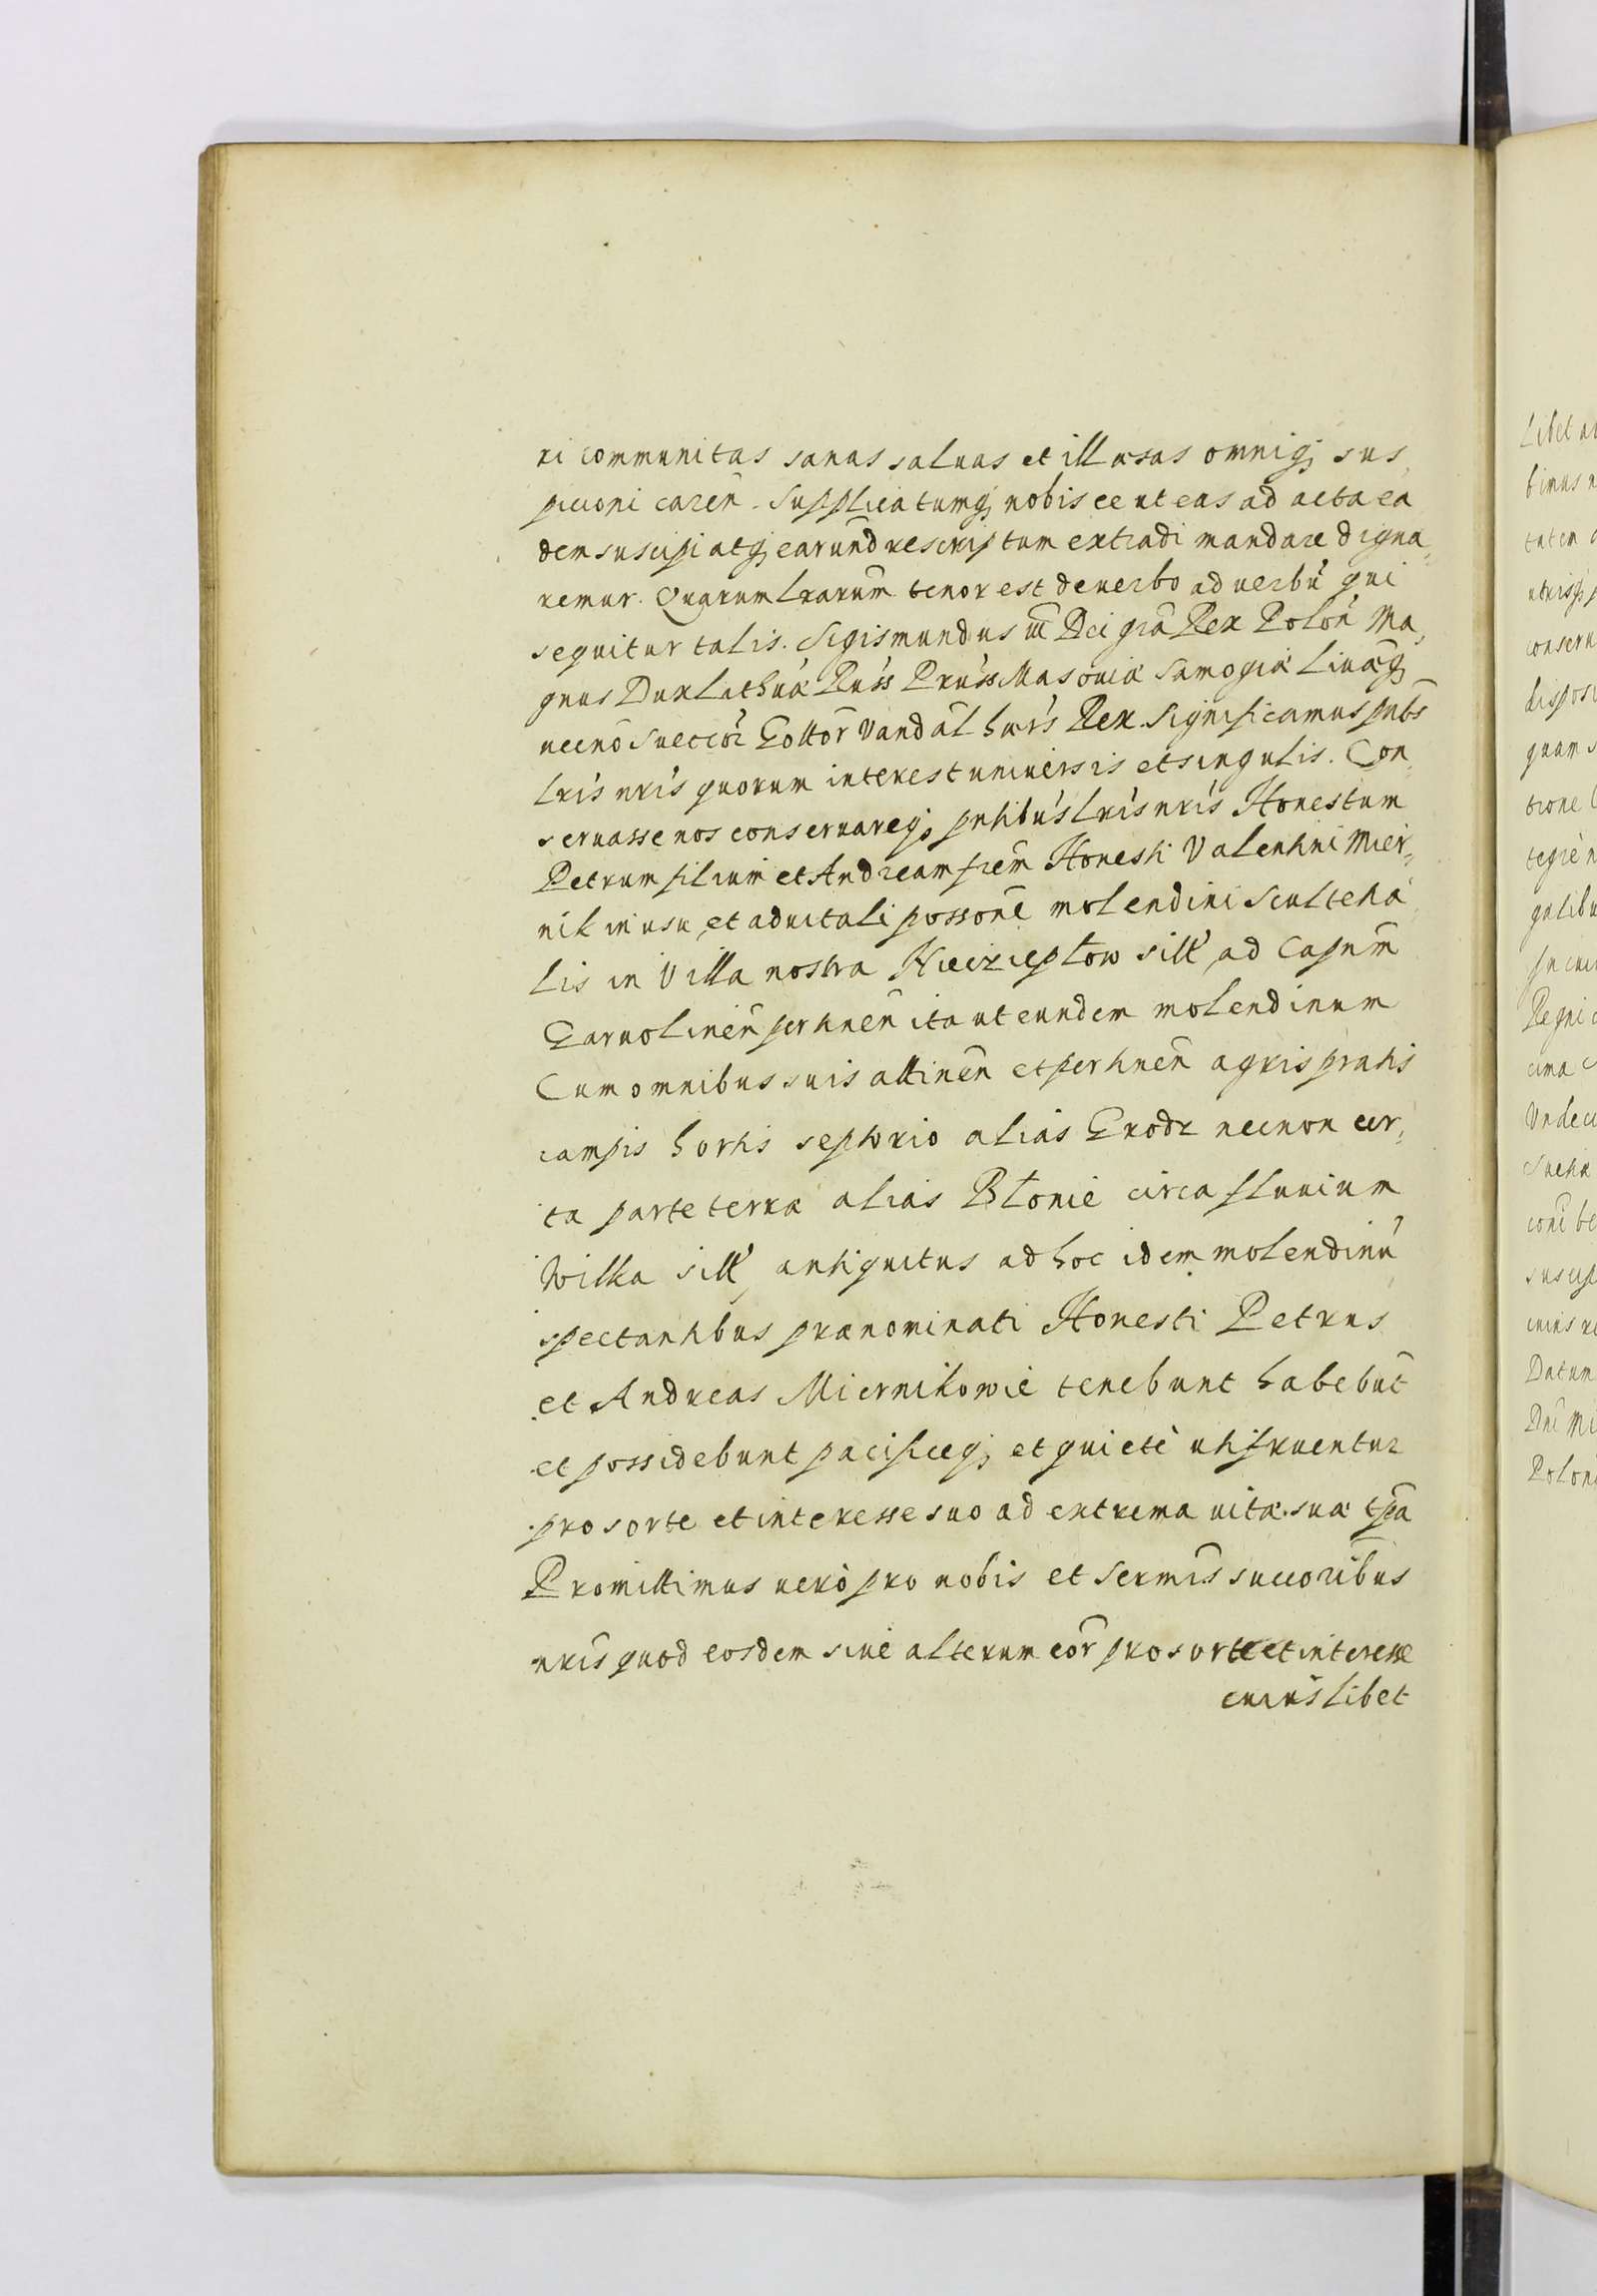 ri communitas sanas saluas et illæsas omniq; sus,
picioni careñ. Supplicatumq; nobis ee ut eas ad acta ea
dem suscipi atq; earund̃ rescriptum extradi mandare digna,
remur. Quarum lrarum̃ tenor est de uerbo ad uerbũ qui
sequitur talis. Sigismundus iii Dei gr̃a Rex Poloñ Ma,
gnus Dux Lithuã Russ Pruss Masouiæ Samogiæ Liuæq;
necnõ Suecor̃ Gottor̃ Vandal̃ hær̃s Rex. Significamus pñtbs
lris nris quorum interest uniuersis et singulis. Con,
seruasse nos conseruareq; pñtibus lris nris Honestum
Petrum filium et Andream frem̃ Honesti Valentini Mier,
nik in usu et aduitali possone molendini scultetia,
lis in Villa nostra sitt ad Capnm̃
Garuolineñ pertineñ ita ut eundem molendinum
Cum omnibus suis attineñ et pertineñ agris pratis
campis hortis septorio alias Grodz necnon cer,
ta parte terræ alias Błonie circa fluuium
Wilka sitt, antiquitus ad hoc idem molendinũ
spectantibus prænominati Honesti Petrus
et Andreas Miernikowie tenebunt habebũt
et possidebunt pacificeq; et quietè utifruentur
pro sorte et interesse suo ad extrema uitæ suæ tp̃a
Promittimus uerò pro nobis et Sermis̃ succoribus
nris̃ quod eosdem siue alterum eor̃ pro sorte et interesse
cuiuslibet
Libet
Datum